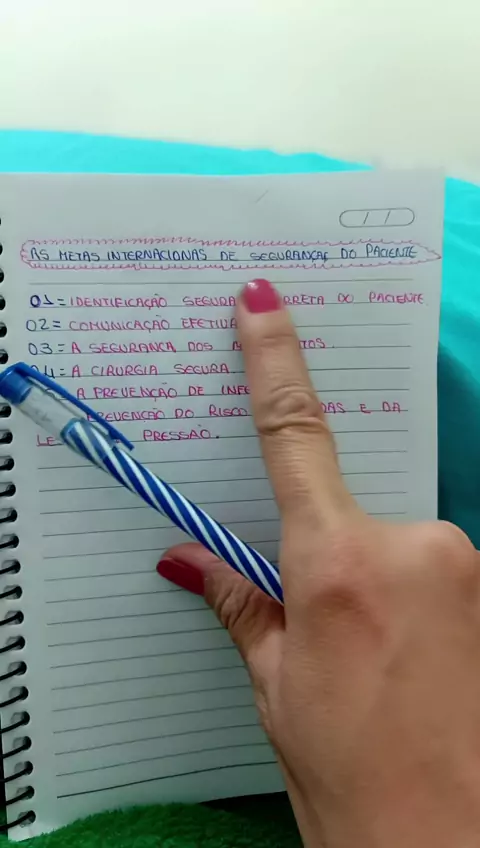 AS METAS INTERNACIONAS DE SEGURANÇAS DO PACIENTE
01 = IDENTIFICAÇÃO SEGURA DO PACIENTE.
02 = COMUNICAÇÃO EFETIVA
03 = A SEGURANCA DOS
A CIRURGIA SEGURA
A PREVENÇÃO DE
DO RISCO E DA
PRESSÃO.